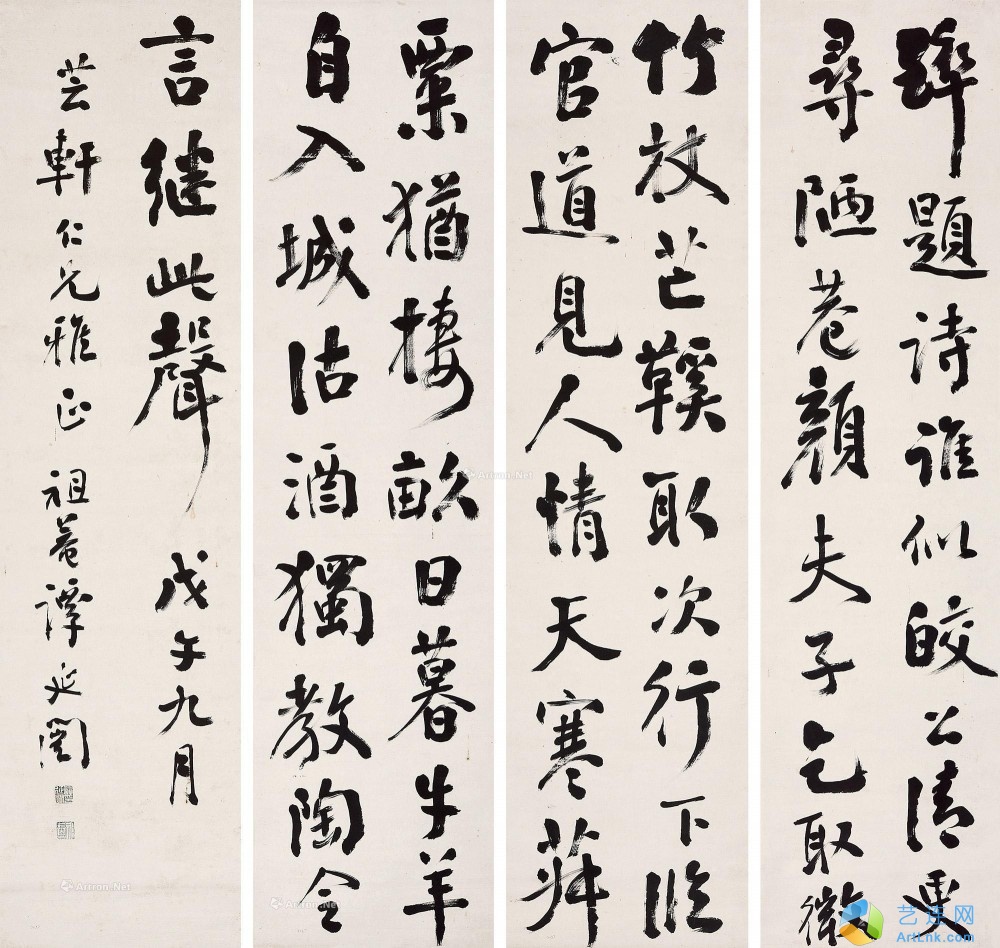 醉題詩誰似皎公清更
尋陋巷顏夫子乞取微
竹杖芒鞵取次行下臨
官道見人情天寒菽
粟猶棲畝日暮牛羊
自入城沽酒獨教陶令
言繼此聲 戊午九月
芸軒仁兄雅正 祖菴譚延闓
Artron.Net
Artron.Net
Artron.Net
ArtLnk.com